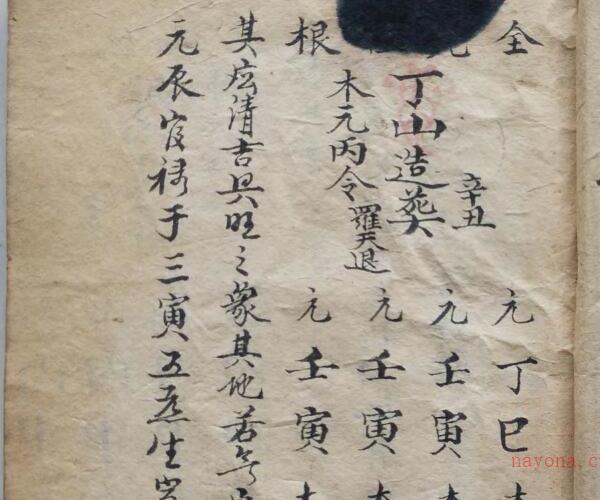 全
辛丑
元丁巳
丁山造葬
元壬寅
木元丙令 羅天退
元壬寅
根
元壬寅
其清吉興旺之象其他若
元辰官祿于三寅五虎生
nayona.c